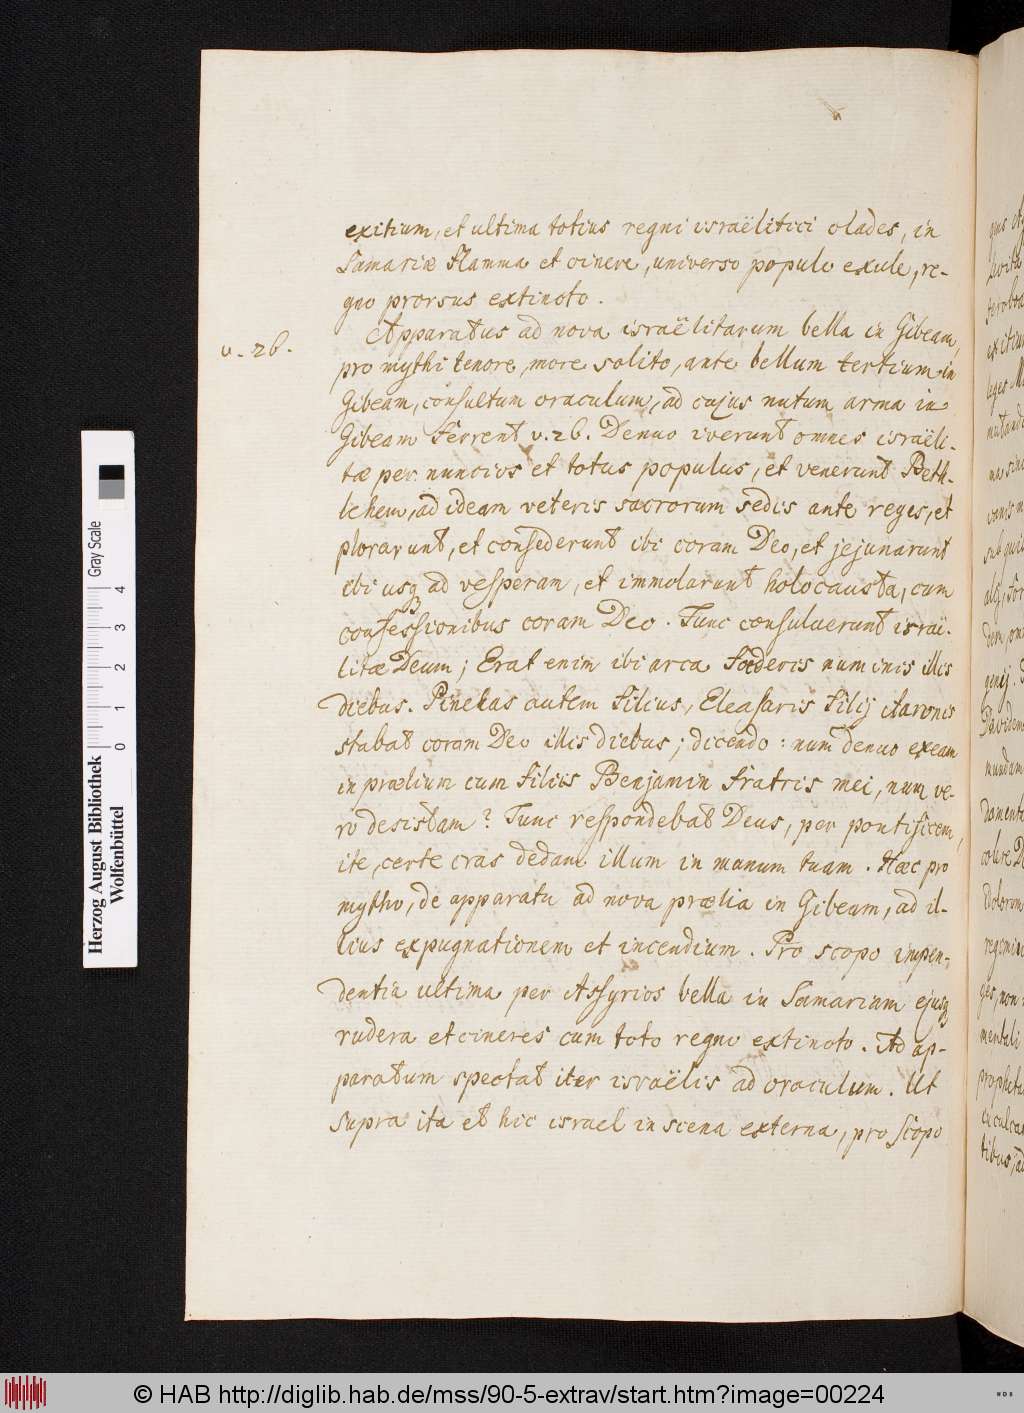 exitium, et ultima totius regni israëlitici clades, in
Samariæ flamma et cinere, universo populo exule, re-
gno prorsus extincto.
v. 26.
Apparatus ad nova israëlitarum bella in Gibeam,
pro mythi tenore, more solito, ante bellum tertium in
Gibeam, consultum oraculum, ad cujus nutum arma in
Gibeam ferrent v. 26. Denuo iverunt omnes israëli-
tæ per nuncios et totus populus, et venerunt Beth-
lehem, ad ideam veteris sacrorum sedis ante reges, et
plorarunt, et consederunt ibi coram Deo, et jejunarunt
ibi usq ad vesperam, et immolarunt holocausta, cum
confessionibus coram Deo. Tunc consuluerunt israë-
litæ Deum; Erat enim ibi arca fœderis numinis illis
diebus. Pinehas autem filius, Eleasaris filij Aaronis
stabat coram Deo illis diebus; dicendo: num denuo exeam
in prælium cum filiis Benjamin fratris mei, num ve-
ro desistam? Tunc respondebat Deus, per pontificem,
ite, certe cras dedam illum in manum tuam. Hæc pro
mytho, de apparatu ad nova prælia in Gibeam, ad il-
lius expugnationem et incendium. Pro scopo impen-
dentia ultima per Assyrios bella in Samariam ejusq
rudera et cineres cum toto regno extincto. Ad ap-
paratum spectat iter israëlis ad oraculum. Ut
supra ita et hic israel in scena externa, pro scopo
Herzog August Bibliothek
Wolfenbüttel
Gray Scale
0 1 2 3 4
© HAB http://diglib.hab.de/mss/90-5-extrav/start.htm?image=00224